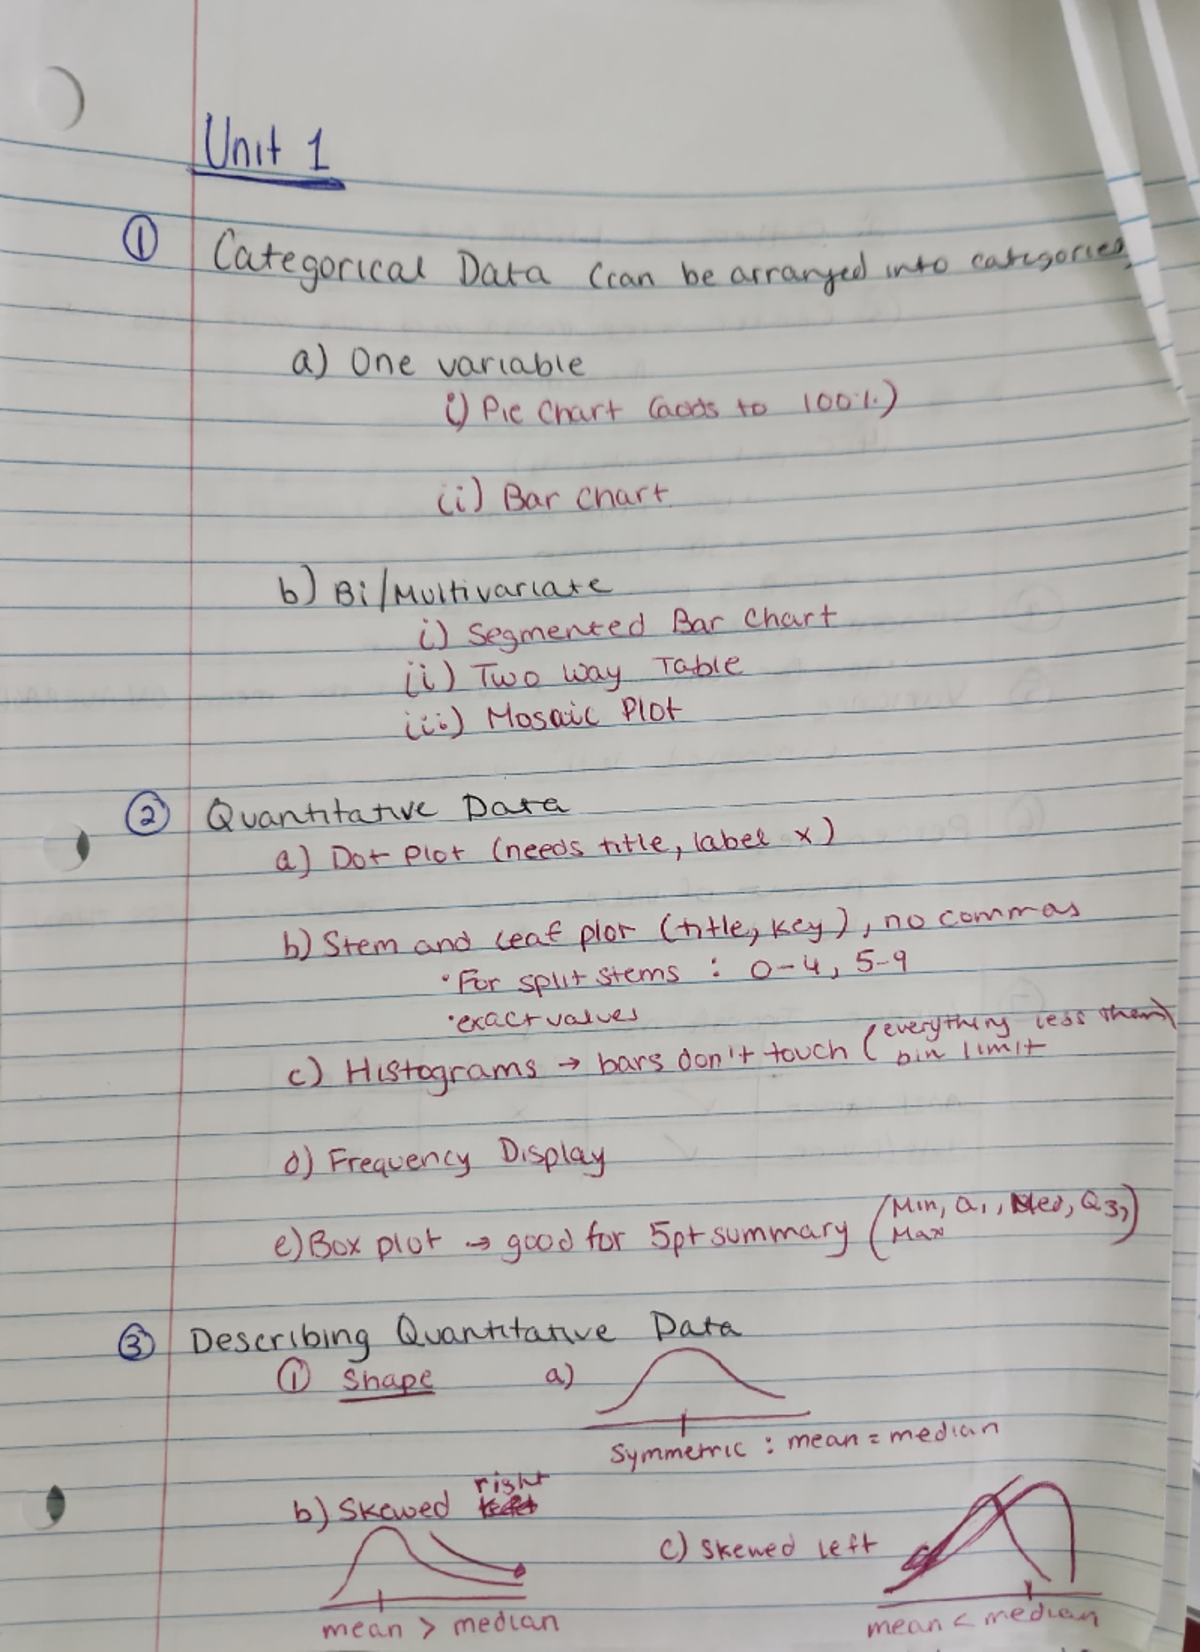 Unit 1
① Categorical Data (can be arranged into categories)
a) One variable
i) Pie Chart (adds to 100%)
ii) Bar Chart
b) Bi/Multivariate
i) Segmented Bar Chart
ii) Two Way Table
iii) Mosaic Plot
② Quantitative Data
a) Dot Plot (needs title, label x)
b) Stem and Leaf plot (title, key), no commas
• For split stems : 0-4, 5-9
• exact values
c) Histograms → bars don't touch (everything less than bin limit
d) Frequency Display
e) Box plot → good for 5pt summary (Min, Q1, Med, Q3, Max)
③ Describing Quantitative Data
① Shape a)
Symmetric : mean = median
b) Skewed right
c) Skewed left
mean > median
mean < median